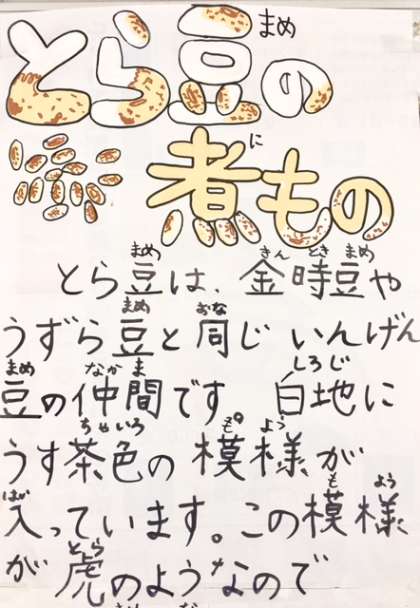 まめ
とら豆の
に
煮もの
まめ きん とき まめ
とら豆は、金時豆や
まめ おな
うずら豆と同じ いんげん
まめ なか ま しろじ
豆の仲間です 白地に
ちゃいろ も よう
うす茶色の模様が
も よう
入っています。この模様
とら
が虎のようなので